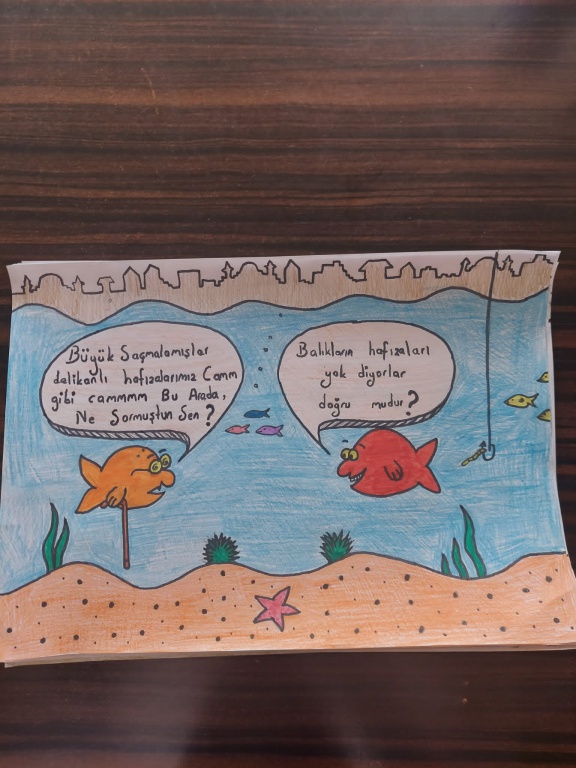 Büyük Saçmalamışlar
delikanlı hafızalarımız Camm
gibi cammmm Bu Arada,
Ne Sormuştun Sen?
Balıkların hafızaları
yok diyorlar
doğru mudur?